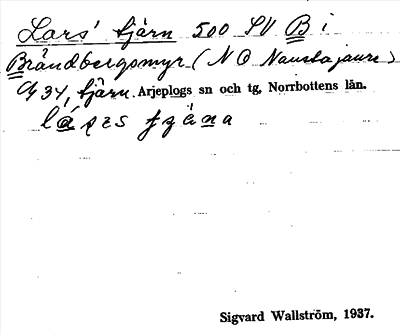 Lars' tjärn 500 SV B i
Brändbergsmyr (N O Naustajaure)
34, tjärn. Arjeplogs sn och tg, Norrbottens län.
Sigvard Wallström, 1937.